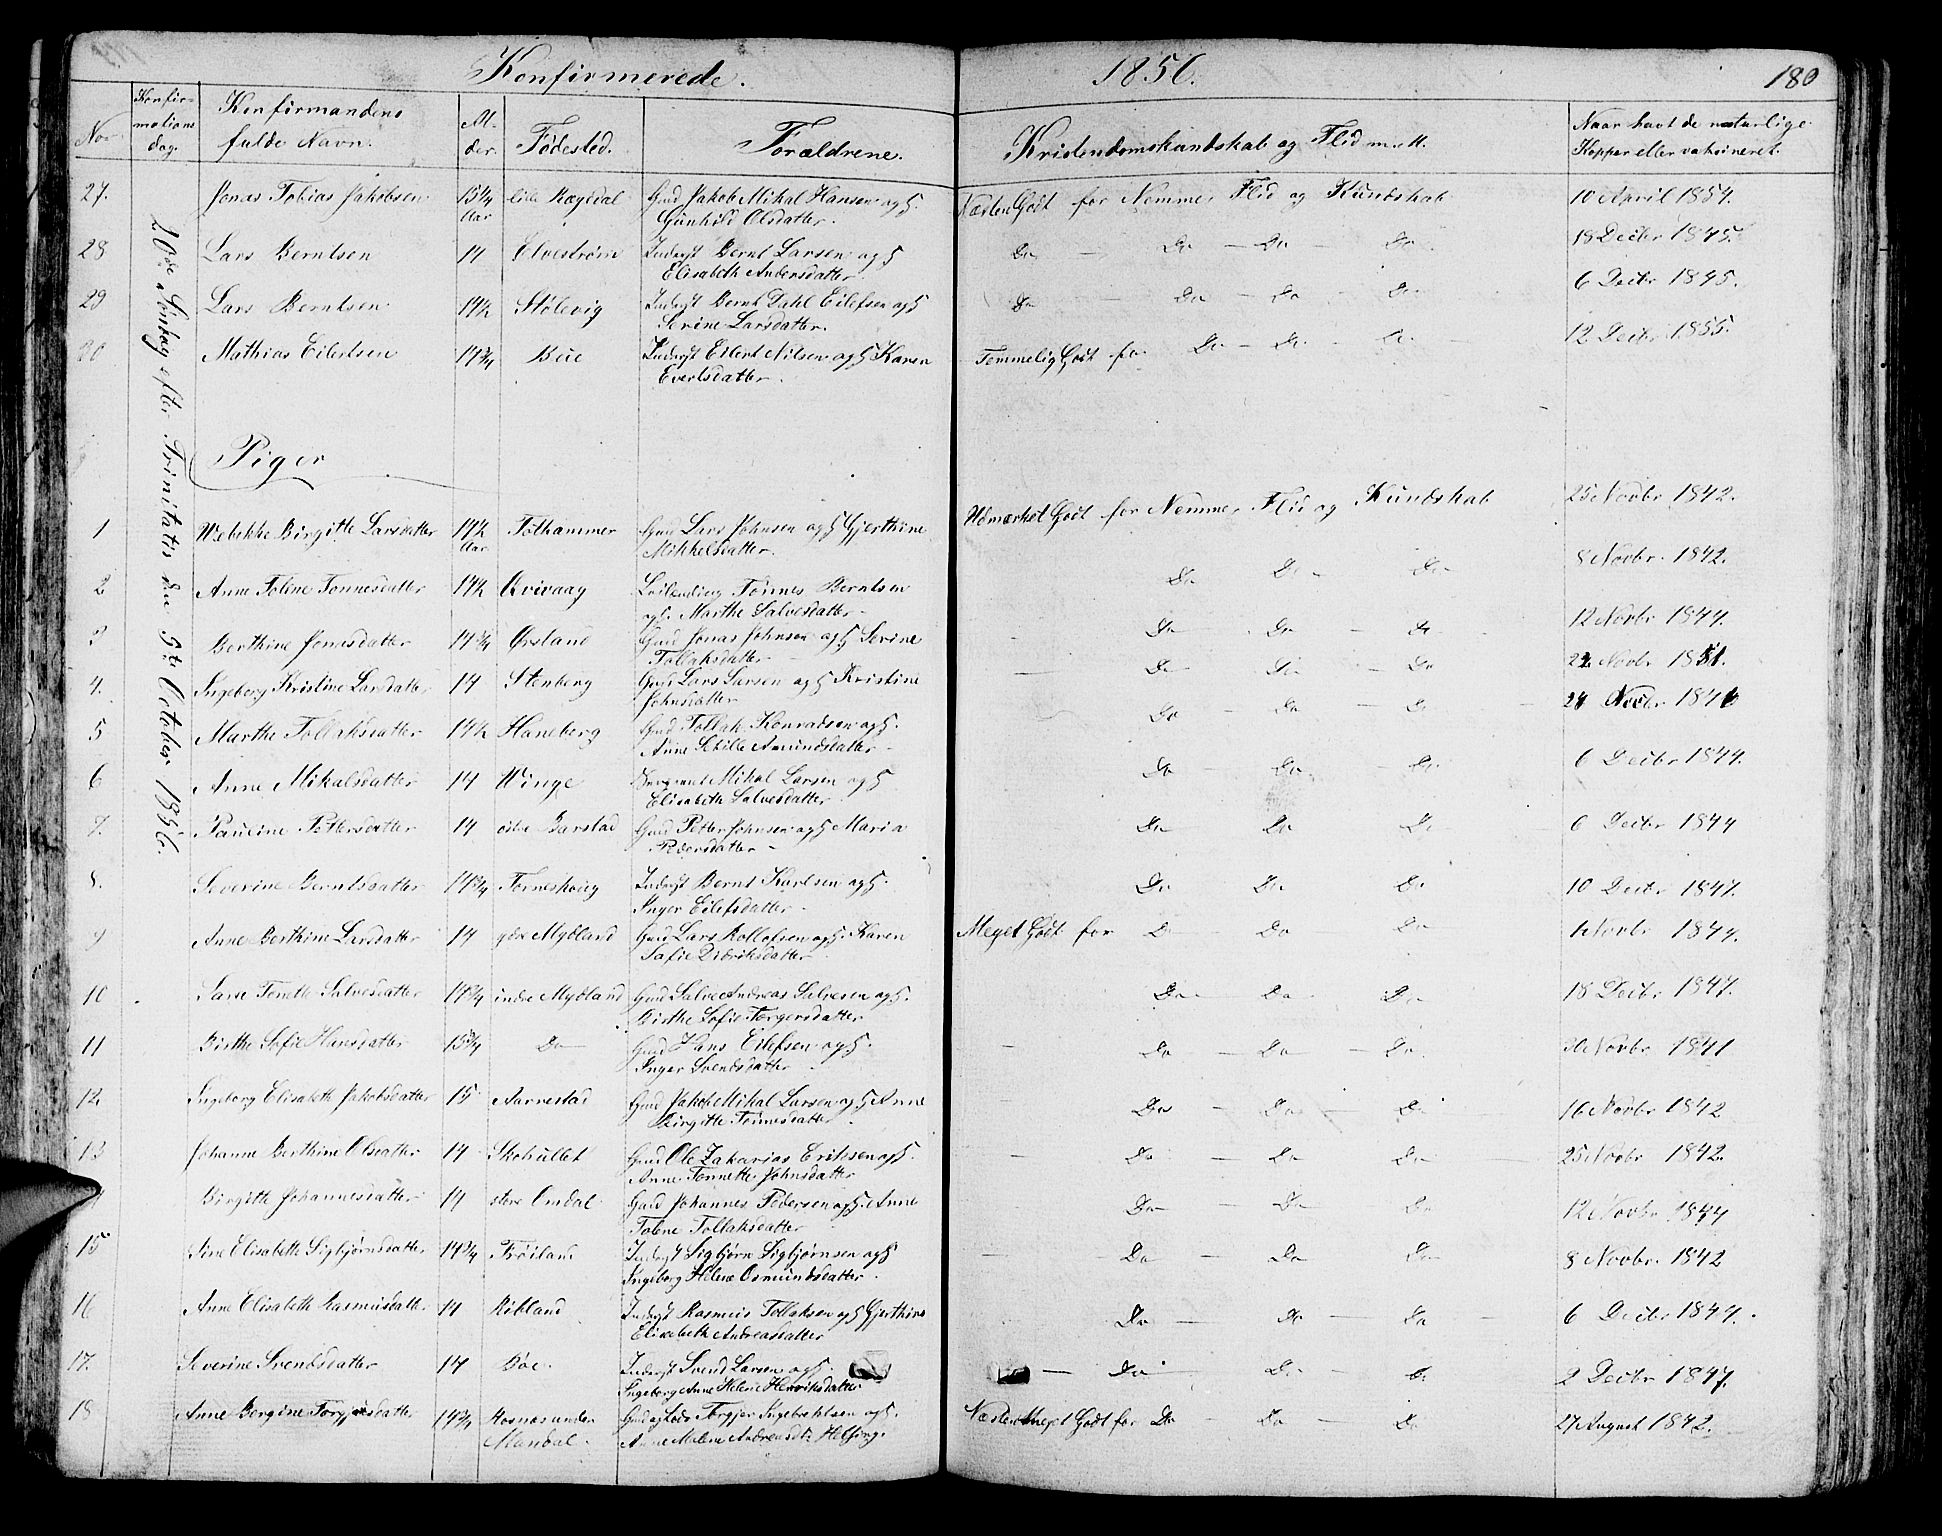 Konfirmerede. 1856. 180
No. Konfirmations dag. Konfirmandens fulde Navn. Alder. Fødested. Forældrene. Kristendomskundskab og Flid m. M. Naar havt de naturlige Kopper eller vaksineret.
20de Søndag efter Trinitatis den 5te October 1856.
27. Jonas Tobias Jakobsen 15 1/4 Aar lille Rægedal Gmd Jakob Mikal Hansen og H. Næsten Godt for Nemme, Flid og Kundskab 10 April 1854.
Gunhild Olsdatter.
28 Lars Berntsen 14 Elvestrøm Inderst Bernt Larsen og H Do — Do — Do — Do 18 Decbr 1845.
Elisabeth Andersdatter
29 Lars Berntsen 14 1/2 Stølevig Inderst Bernt Dahl Eilefsen og H Do — Do — Do — Do 6 Decbr 1845.
Serine Larsdatter.
30 Mathias Eilertsen 14 3/4 Bue Inderst Eilert Nilsen og H Karen Temmelig Godt for Do — Do — Do 12 Decbr 1855.
Evertsdatter.
Piger
1 Webekke Birgitte Larsdatter 14 1/2 Aar Tothammer Gmd Lars Johnsen og H Gjerthine Udmærket Godt for Nemme, Flid og Kundskab 25 Novbr 1842.
Mikkelsdatter.
2 Anne Tolene Tønnesdatter 14 1/2 Qvivaag Tønnes Berntsen Do Do Do 8 Novbr. 1842.
og H. Marthe Salvesdatter
3 Berthine Jonasdatter 14 3/4 Ørsland Gmd Jonas Johnsen og H Serine Do — Do — Do 12 Novbr 1844.
Tollaksdatter
4. Ingeborg Kristine Larsdatter 14 Stenberg Gmd Lars Larsen og H Kristine Do — Do — Do Novbr 1851.
Johnsdatter
5 Marthe Tollaksdatter 14 1/2 Haneberg Gmd Tollak Konradsen og H. Do — Do — Do 24
Anne Sibille Amundsdatter
6 Anne Mikalsdatter 14 Winge Mikal Larsen og H Do — Do — Do 6 Decbr 1844.
Elisabeth Salvesdatter
7. Pauline Pettersdatter 14 østre Barstad Gmd Petter Johnsen og H Maria Do Do Do 6 Decbr 1844
Pedersdatter
8. Severine Berntsdatter 14 3/4 Torneshoug Inderst Bernt Karlsen og H. Do Do Do 10 Decbr 1847.
Inger Eilefsdatter
9 Anne Berthine Larsdatter 14 ydre Mydland Gmd Lars Rollofsen og H. Karen Meget Godt for Do Do Do 1 Novbr 1844.
Safie Didriksdatter
10 Sara Tonette Salvesdatter 14 3/4 indre Mydland Gmd Salve Andreas Salvesen og H. Do — Do — Do 18 Decbr 1847.
Birthe Sofie Torgersdatter
11 Birthe Safie Hansdatter 15 3/4 Do Gmd Hans Eilefsen og H. Do — Do — Do 30 Novbr 1841
Inger Svendsdatter
12 Ingeborg Elisabeth Jakobsdatter 15 Aarrestad Gmd Jakob Mikal Larsen og H Anne Do — Do — Do 16 Novbr 1842
Birgitte Tønnesdatter
13 Johanne Berthine Olsdatter 14 Skohullet Gmd Ole Zakarias Eriksen og H. Do — Do — Do 25 Novbr 1842.
Anne Tonnette Johnsdatter
Birgitte Johannesdatter 14 store Omdal Gmd Johannes Pedersen og H. Anne Do — Do Do 12 Novbr 1844
Tolene Tollaksdatter
15 Sine Elisabeth Sigbjørnsdatter 14 3/4 Frøiland Inderst Sigbjørn Sigbjørnsen og H Do — Do Do 8 Novbr 1842
Ingeborg Helene Osmundsdatter.
16 Anne Elisabeth Rasmusdatter 14 Ribland Inderst Rasmus Tollaksen og H Gjerthine Do — Do — Do 6 Decbr 1844.
Elisabeth Andreasdatter
17. Severine Svendsdatter 14 Bøe. Inderst Svend Larsen og H. — Do — Do — Do 2 Decbr 1847.
Ingeborg Anne Helene Henriksdatter
18 Anne Bergine Torgjersdatter 14 3/4 Hosnæs under Mandal. Gmd og Lods Torgjer Ingebrektsen og H. Næsten Meget Godt for Do — Do — Do 27 August 1842.
Anne Malene Andreasdtr